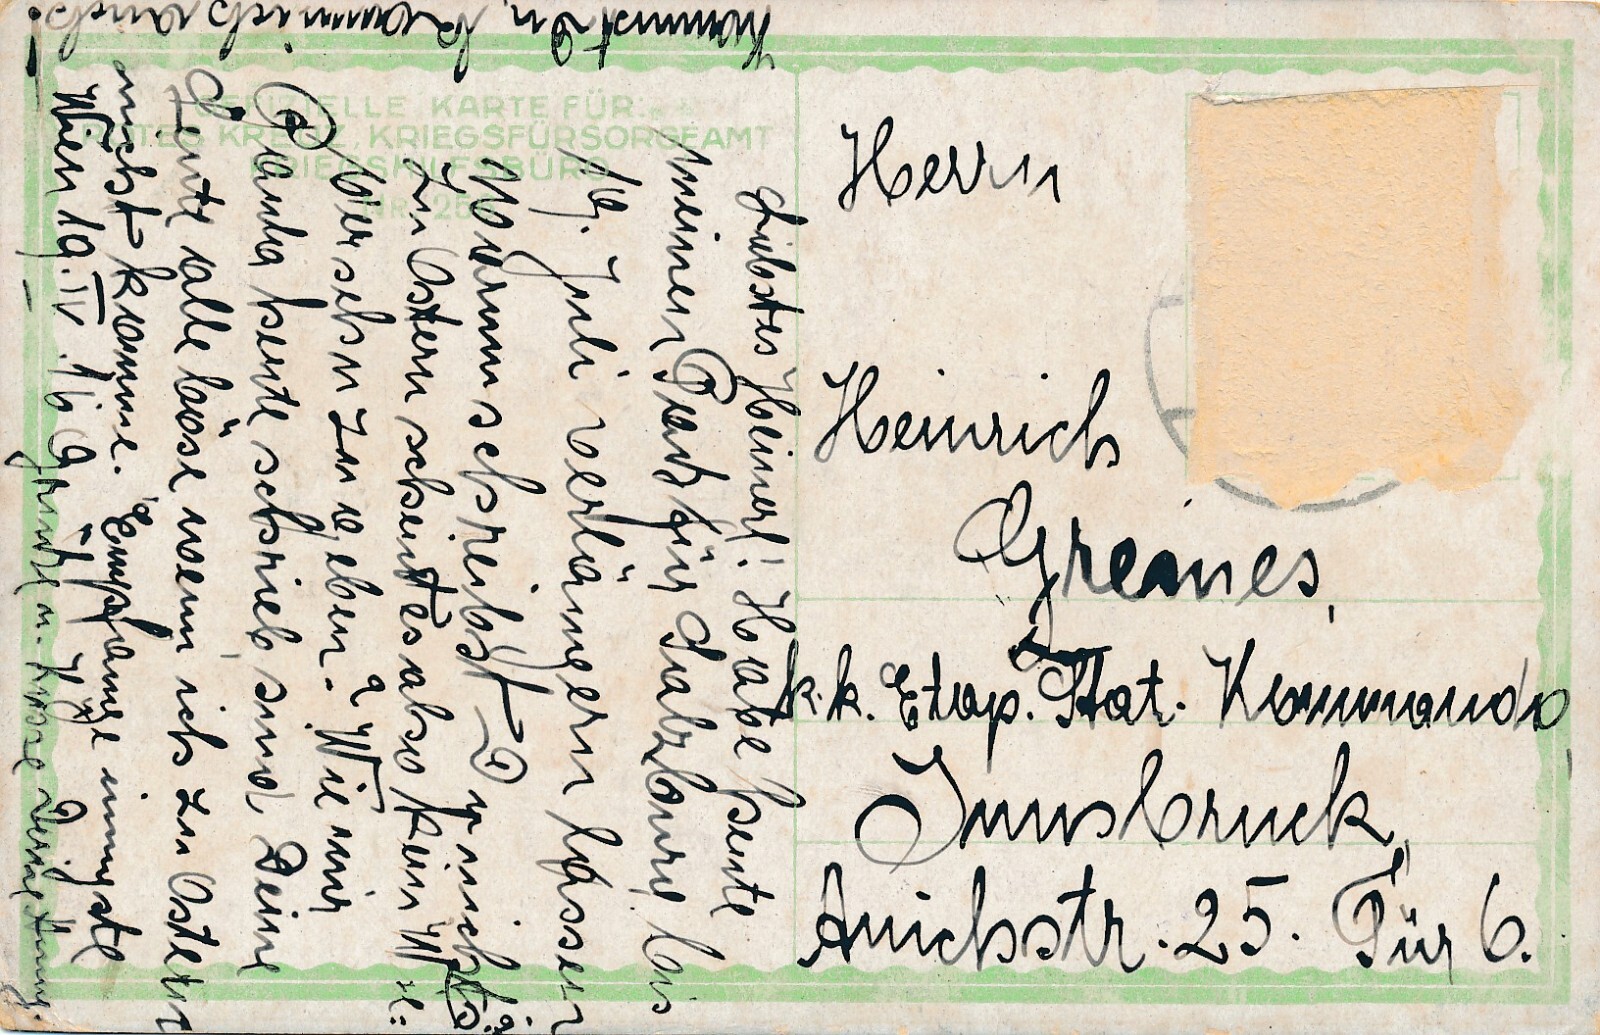 OFFIZIELLE KARTE FÜR:
ROTES KREUZ, KRIEGSFÜRSORGEAMT
KRIEGSHILFSBÜRO
Herrn
Heinrich
Greines,
k.k. Etap. Stat. Kommando
Innsbruck,
Anichstr. 25. Tür 6.
Liebstes Heinerl! Habe heute
meinen Pass für Salzburg bis
16. Juli verlängern lassen
Warum schreibst D mir nicht?
Zu Ostern scheint es also kein
sehn zu geben. Wie mir
Tante heute schrieb sind Deine
Leute alle böse wenn ich zu Ostern
nicht komme. Empfange innigste
Wien 19. IV. 16
Grüße u. Küsse Deine
Kommst Du,